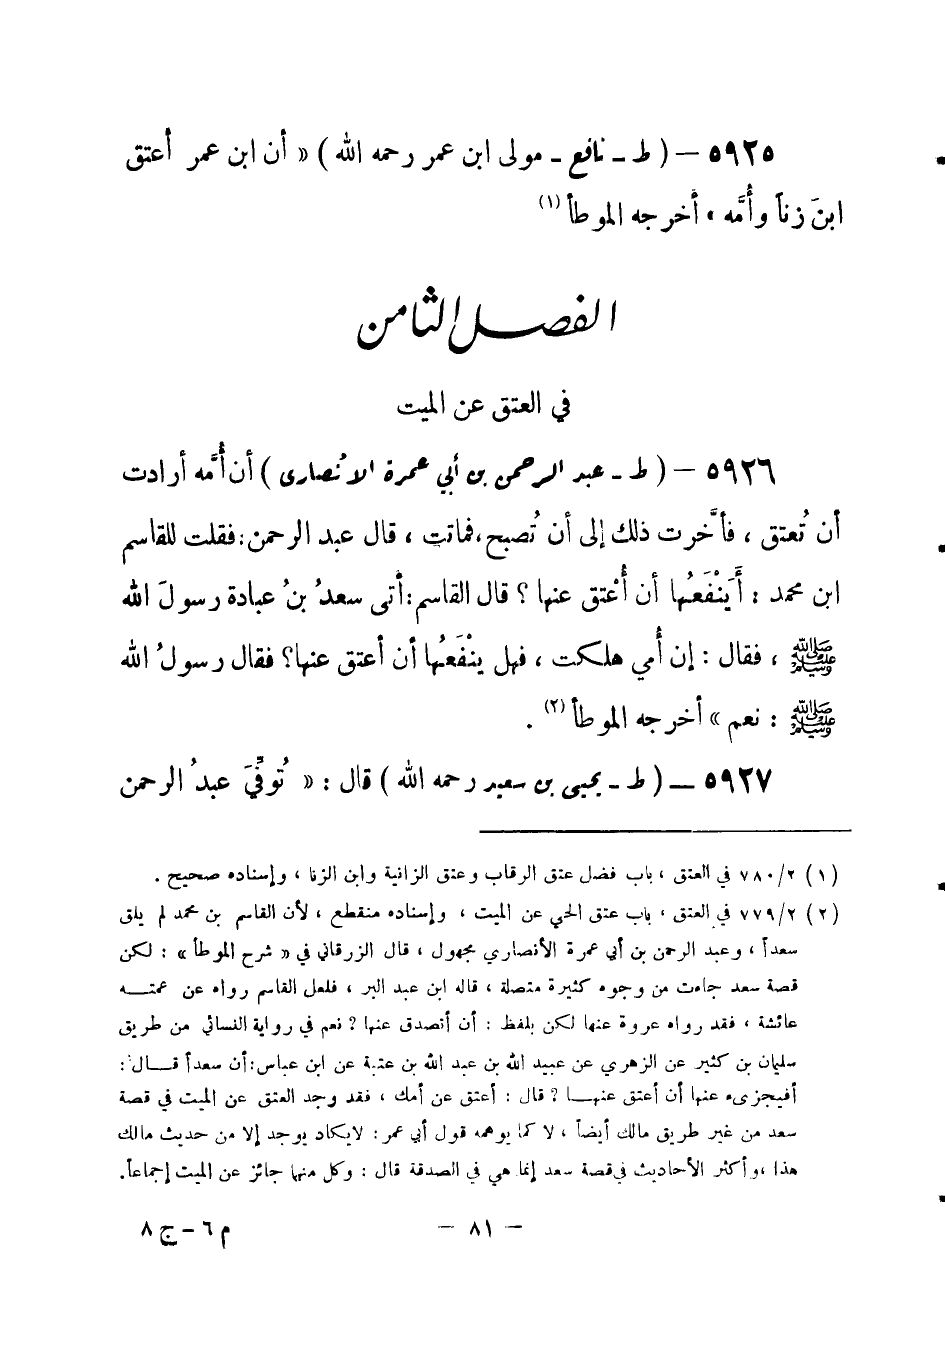 ٥٩٢٥ – ( ط ـ نافع ـ مولى ابن عمر رحمه الله ) « أن ابن عمر أعتق
ابنَ زناً وأُمَّه » أخرجه الموطأ (١)
الفصل الثامن
في العتق عن الميت
٥٩٢٦ – ( ط ـ عبد الرحمن بن أبي عمرة الأنصاري ) أن أُمَّه أرادت
أن تُعتق ، فأخَّرت ذلك إلى أن تُصبح ، فماتت ، قال عبد الرحمن : فقلت للقاسم
ابن محمد : أَيَنْفَعُها أن أُعْتق عنها ؟ قال القاسم : أتى سعدُ بنُ عبادة رسولَ الله
ﷺ ، فقال : إن أُمي هلكت ، فهل يَنْفَعُها أن أعتق عنها؟ فقال رسولُ الله
ﷺ : نعم » أخرجه الموطأ (٢) .
٥٩٢٧ – ( ط ـ يحيى بن سعيد رحمه الله ) قال : « تُوفِّيَ عبدُ الرحمن
(١) ٢/٧٨٠ في العتق ، باب فضل عتق الرقاب وعتق الزانية وابن الزنا ، وإسناده صحيح .
(٢) ٢/٧٧٩ في العتق ، باب عتق الحي عن الميت ، وإسناده منقطع ، لأن القاسم بن محمد لم يلق
سعداً ، وعبد الرحمن بن أبي عمرة الأنصاري مجهول ، قال الزرقاني في « شرح الموطأ » : لكن
قصة سعد جاءت من وجوه كثيرة متصلة ، قاله ابن عبد البر ، فلعل القاسم رواه عن عمتـــه
عائشة ، فقد رواه عروة عنها لكن بلفظ : أن أتصدق عنها ؟ نعم في رواية النسائي من طريق
سليمان بن كثير عن الزهري عن عبيد الله بن عبد الله بن عتبة عن ابن عباس : أن سعداً قـــال :
أفيجزىء عنها أن أعتق عنهــا ؟ قال : أعتق عن أمك ، فقد وجد العتق عن الميت في قصة
سعد من غير طريق مالك أيضاً ، لا كما يوهمه قول أبي عمر : لايكاد يوجد إلا من حديث مالك
هذا ، وأكثر الأحاديث في قصة سعد إنما هي في الصدقة قال : وكل منها جائز عن الميت إجماعاً.
– ٨١ –
م ٦ – ج ٨